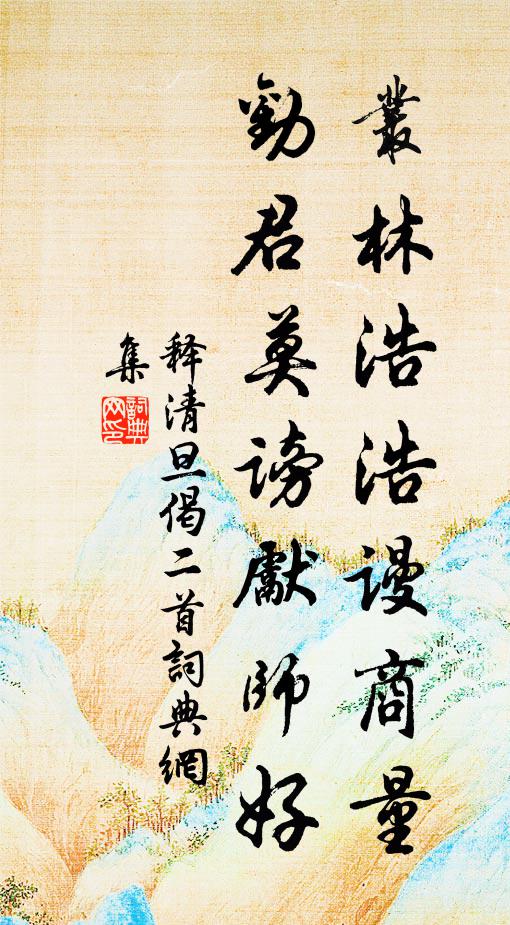 叢林浩浩謾商量
勸君莫謗獻師好
释清旦偈二首詞典網
集
詞典
网印